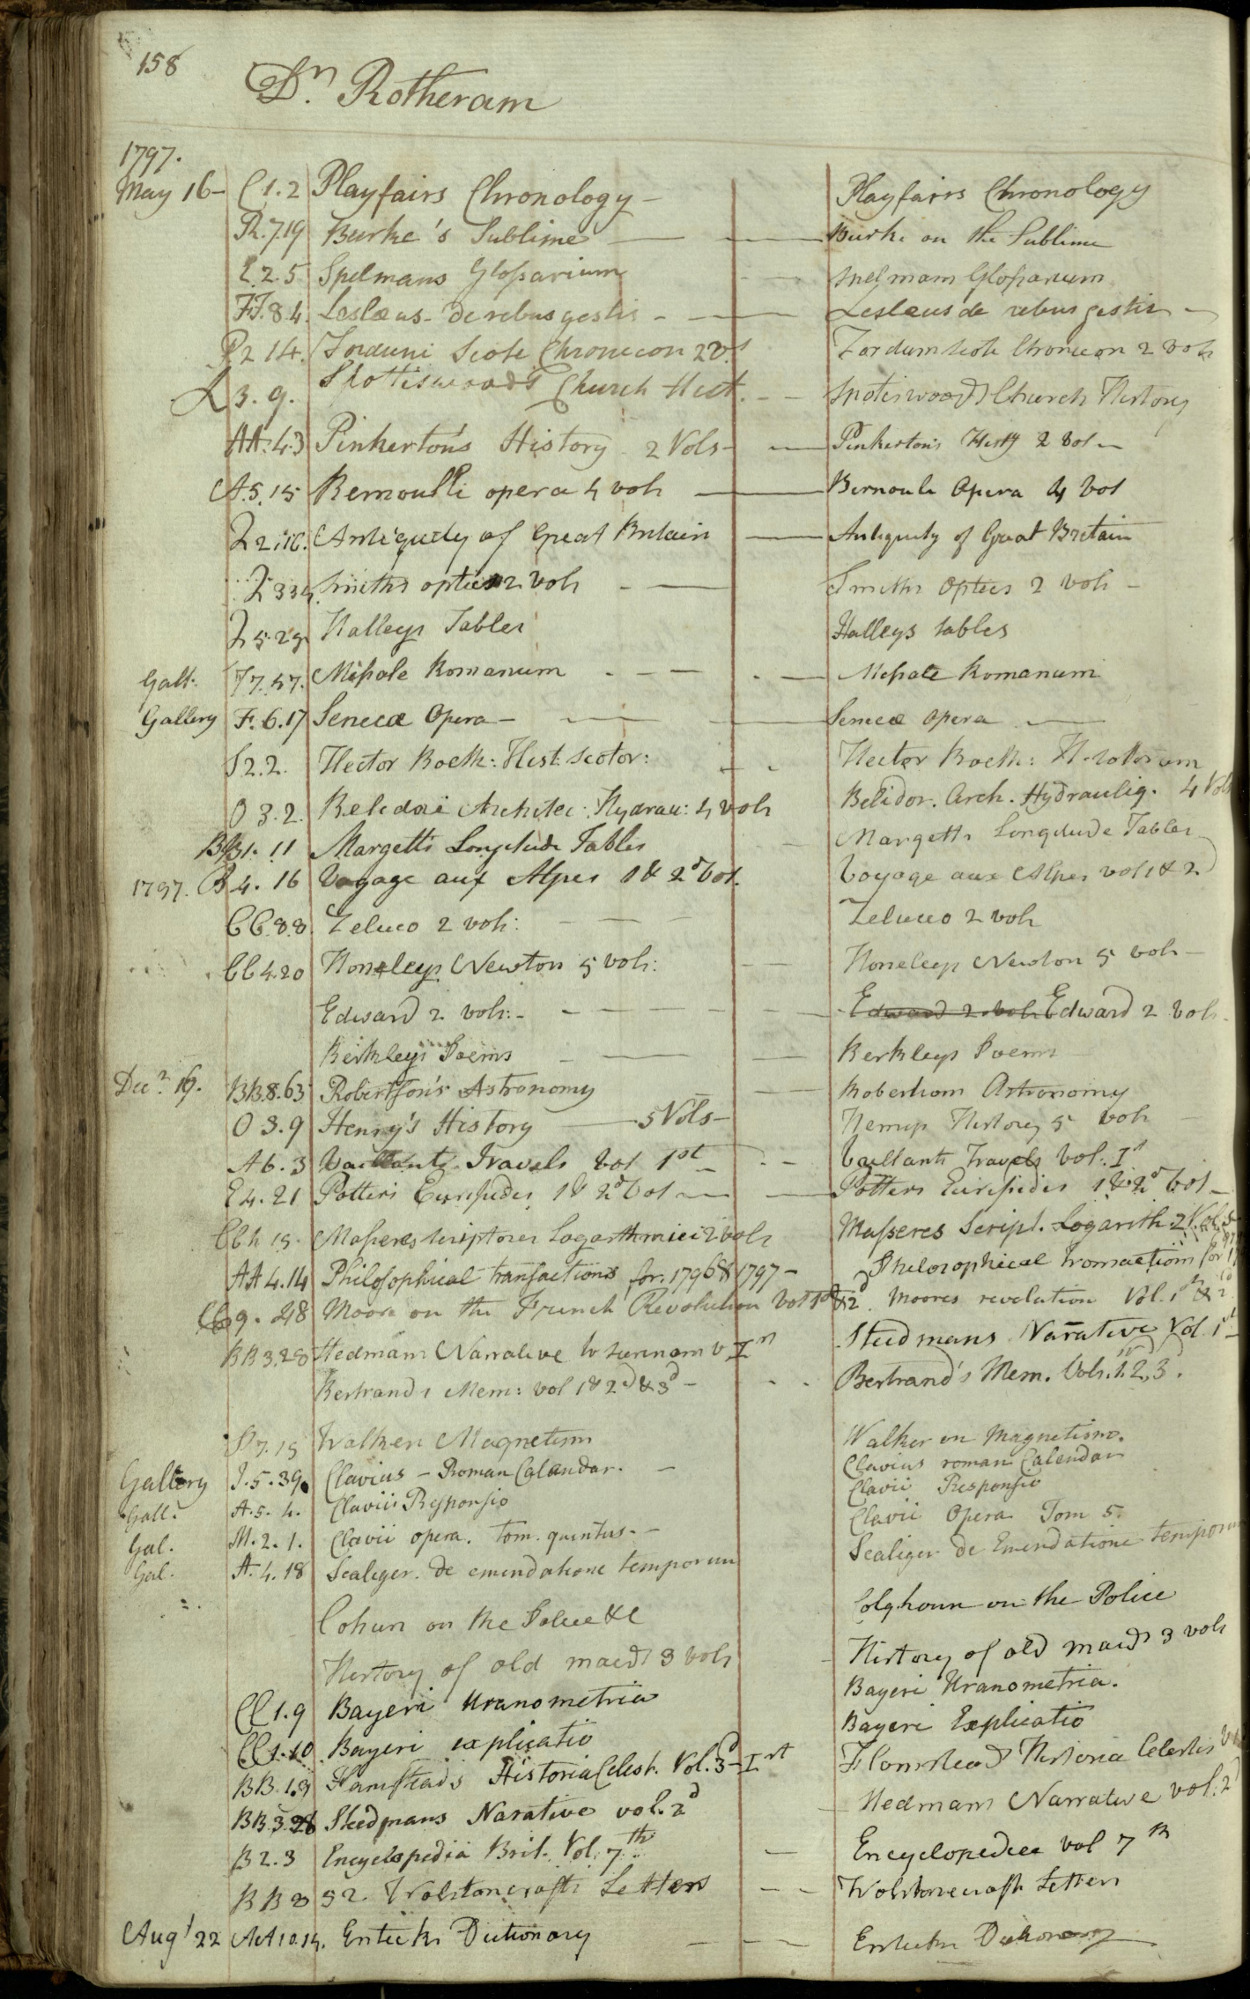 158
Dr. Rotheram
1797.
May 16 - C 1. 2 Playfairs Chronology - Playfairs Chronology
R. 7. 19 Burke's Sublime Burke on the Sublime
2. 5 Spelmans Glossarium Spelmans Glossarium
FF. 8. 4. Leslæus - De rebus gestis - Leslæus de rebus gestis
P 2 14. Forduni Scoti Chronicon 2 Vs Fordum Scoti Chronicon 2 vols
L 3. 9. Spottiswoods Church Hist. Spotiswoods Church History
AA. 4. 3 Pinkerton's History 2 Vols - Pinkertons Histy 2 Vol
A. 5. 15 Bernoulli opera 4 vols Bernouli Opera 4 Vol
Antiquity of Great Britain Antiquity of Great Britain
Smiths optics 2 vols Smiths Optics 2 vols -
5. 29 Halleys Tables Halleys tables
Gall. F 7. 57. Missale Romanum Missale Romanum
Gallery F. 6. 17 Senecæ Opera - Senecæ Opera
S 2. 2. Hector Boeth: Hist: Scotor: Hector Boeth: H. Scotorum
O 3. 2. Belidor Architec: Hydrau: 4 vols Belidor. Arch. Hydraulig. 4 Vols
BB1. 11 Margetts Longitude Tables Margetts Longitude Tables
1797. B 4. 16 Voyage aux Alpes 1 & 2d Vol. Voyage aux Alpes vol 1 & 2d
CC. 8. 8. Zeluco 2 vols: Zeluco 2 vols
CC 4. 20 Horsleys Newton 5 vols: Horseleys Newton 5 vols -
Edward 2 vols: - Edward 2 vols Edward 2 Vols.
Berkleys Poems Berkleys Poems
Decr. 19. BB. 8. 63 Robertson's Astronomy Robertsons Astronomy
O 3. 9 Henry's History 5 Vols - Henrys History 5 vols
A 6. 3 Vaillants Travels Vol 1st Vaillants Travels Vol. Ist
E 4. 21 Potters Euripides 1 & 2d Vol Potters Euripides 1 & 2d Vol
15. Maseres Scriptores Logarithmici 2 vols Maseres Script. Logarith. 2 Vols
AA 4. 14 Philosophical transactions for 1796 & 1797 - Philosophical Transactions for
9. 48 Moore on the French Revolution Vol 1st & 2d. Moores revolution Vol. 1st & 2d
BB 3. 28 Stedmans Narrative to Surinam v. Ist Stedmans Narative Vol. 1st
Bertrands Mem: vol 1 & 2d & 3d - Bertrand's Mem. Vols. 1, 2, 3d.
7. 15 Walker Magnetism Walker on Magnetism.
Gallery J. 5. 39. Clavius - Roman Calandar. Clavius roman Calendar
Gall. A. 5. 4. Clavii Responsio Clavii Responsio
Gal. M. 2. 1. Clavii opera. tom. quintus. - Clavii Opera Tom 5.
Gal. A. 4. 18 Scaliger. de emendatione temporum Scaliger de Emendatione temporum
Cohun on the Police &c Colqhoun on the Police
History of old maids 3 vols History of old maids 3 vols
CC 1. 9 Bayeri Uranometria Bayeri Uranometria.
CC 1. 10 Bayeri explicatio Bayeri Explicatio
BB. 1. 3 Flamsteads Historia Celest. Vol. 3d - Ist Flamstead Historia Celestis
BB. 3. 28 Stedmans Narative vol. 2d Stedmans Narrative vol: 2d
B 2. 3 Encyclopedia Brit. Vol. 7th Encyclopedia vol 7th
BB 8 52 Wolstoncrafts Letters Wolstonecraft Letters
Augt 22 AA 10. 14. Enticks Dictionary Enticks Dictionary